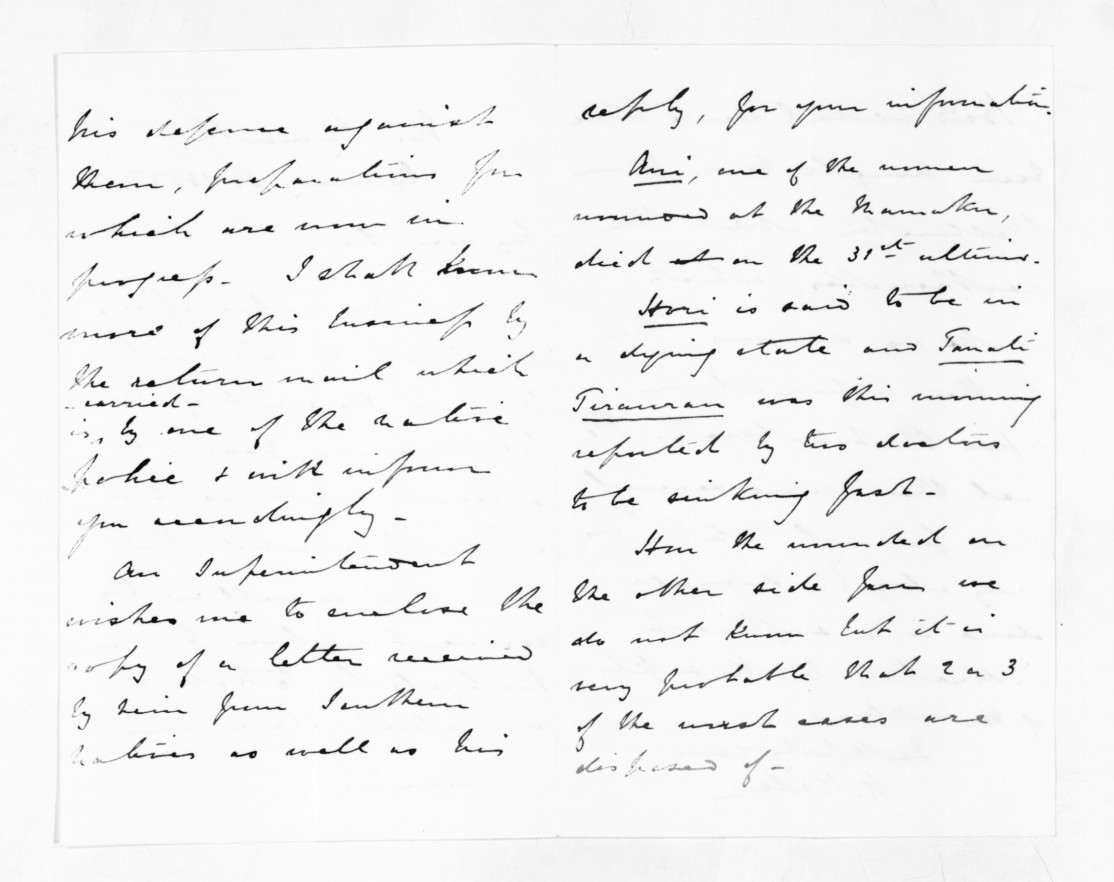 his defence against
them, preparations for
which are now in
progress. I shall know
more of this business by
the return mail which
-carried-
is, by one of the native
police & will inform
you accordingly -
Our Superintendent
wishes me to enclose the
copy of a letter received
by him from Southern
natives as well as his
reply, for your information.
Ani, one of the women
wounded at the Mamaku,
died at on the 31st ultimo.
Hori is said to be in
a dying state and Tamati
Tirauran was this morning
reported by two doctors
to be sinking fast -
How the wounded on
the other side fare we
do not know but it is
very probable that 2 or 3
of the worst cases are
disposed of -